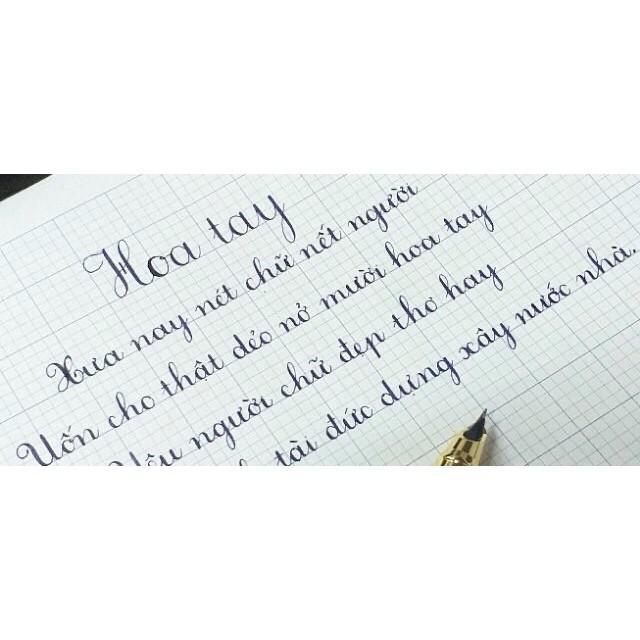 Hoa tay
Xưa nay nét chữ nết người
Uốn cho thật dẻo nở mười hoa tay
Yêu người chữ đẹp thơ hay
tài đức dựng xây nước nhà.